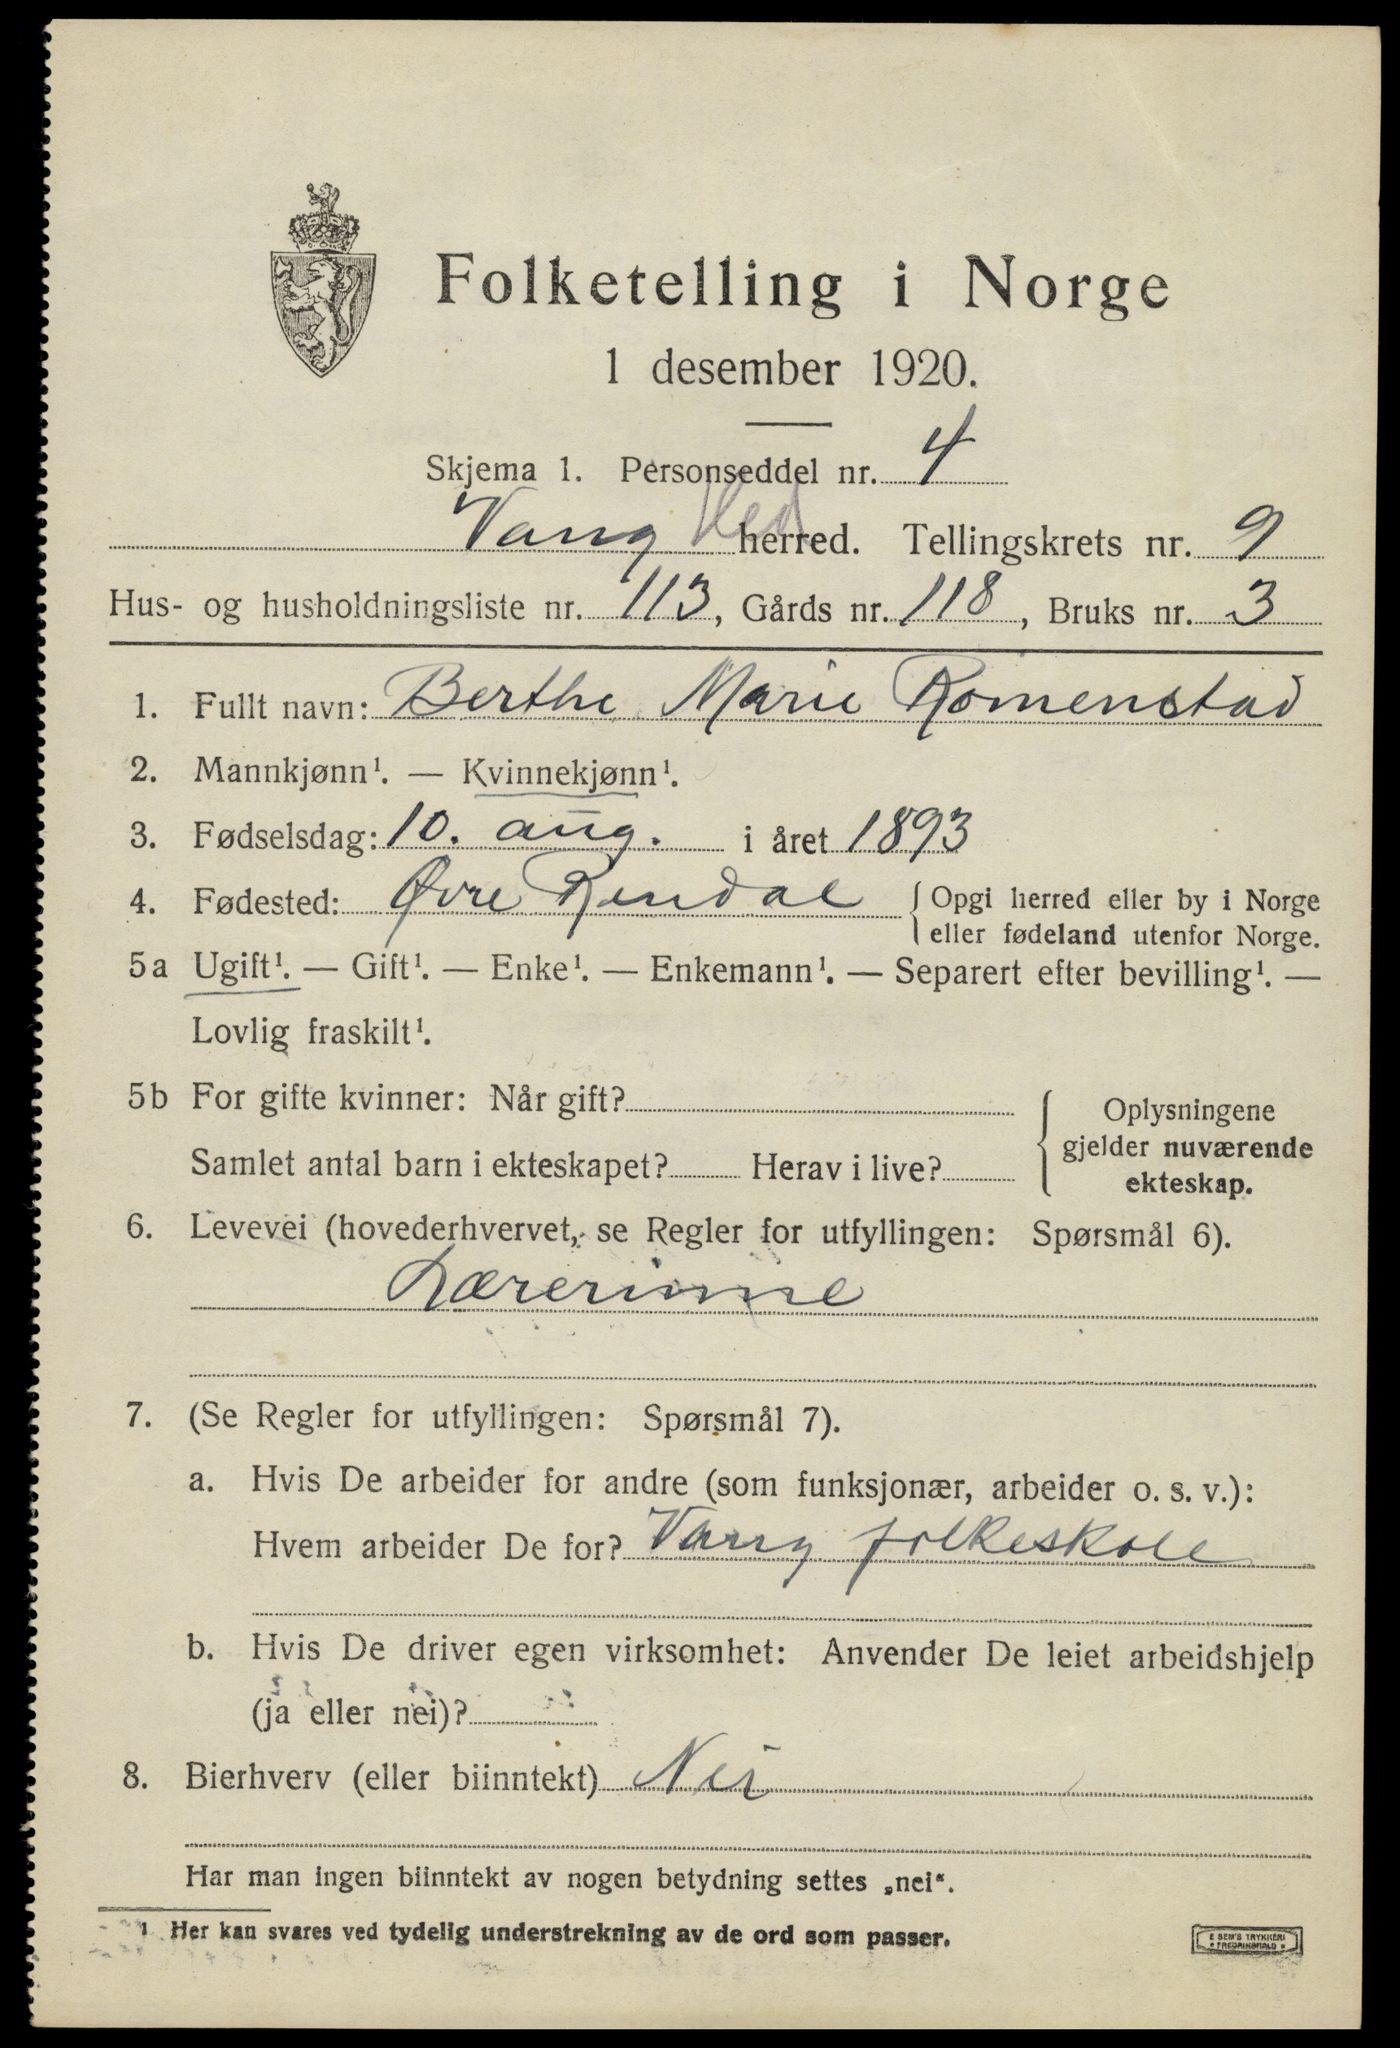 Folketelling i Norge
1 desember 1920.
Skjema 1. Personseddel nr. 4
Vang Hed herred. Tellingskrets nr. 9
Hus- og husholdningsliste nr. 113, Gårds nr. 118, Bruks nr. 3
1. Fullt navn: Berthe Marie Romenstad
2. Mannkjønn¹. — Kvinnekjønn¹.
3. Fødselsdag: 10. aug. i året 1893
4. Fødested: Øvre Rendal { Opgi herred eller by i Norge
eller fødeland utenfor Norge.
5a Ugift¹. — Gift¹. — Enke¹. — Enkemann¹. — Separert efter bevilling¹. —
Lovlig fraskilt¹.
5b For gifte kvinner: Når gift? { Oplysningene
gjelder nuværende
Samlet antal barn i ekteskapet? Herav i live?
ekteskap.
6. Levevei (hovederhvervet, se Regler for utfyllingen: Spørsmål 6).
Lærerinne
7. (Se Regler for utfyllingen: Spørsmål 7).
a. Hvis De arbeider for andre (som funksjonær, arbeider o. s. v.):
Hvem arbeider De for? Vang folkeskole
b. Hvis De driver egen virksomhet: Anvender De leiet arbeidshjelp
(ja eller nei)?
8. Bierhverv (eller biinntekt) Nei
Har man ingen biinntekt av nogen betydning settes „nei“.
1 Her kan svares ved tydelig understrekning av de ord som passer.
E SEM'S TRYKKERI
* FREDRIKSHALD *